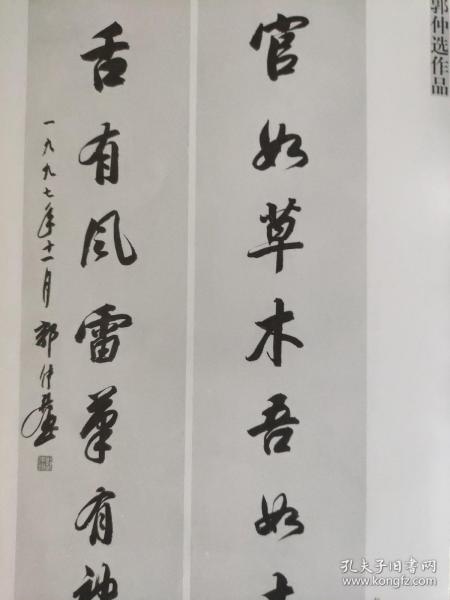 郭仲选作品
官如草木吾如土
舌有风雷笔有神
一九九七年十一月 郭仲选
孔夫子旧书网